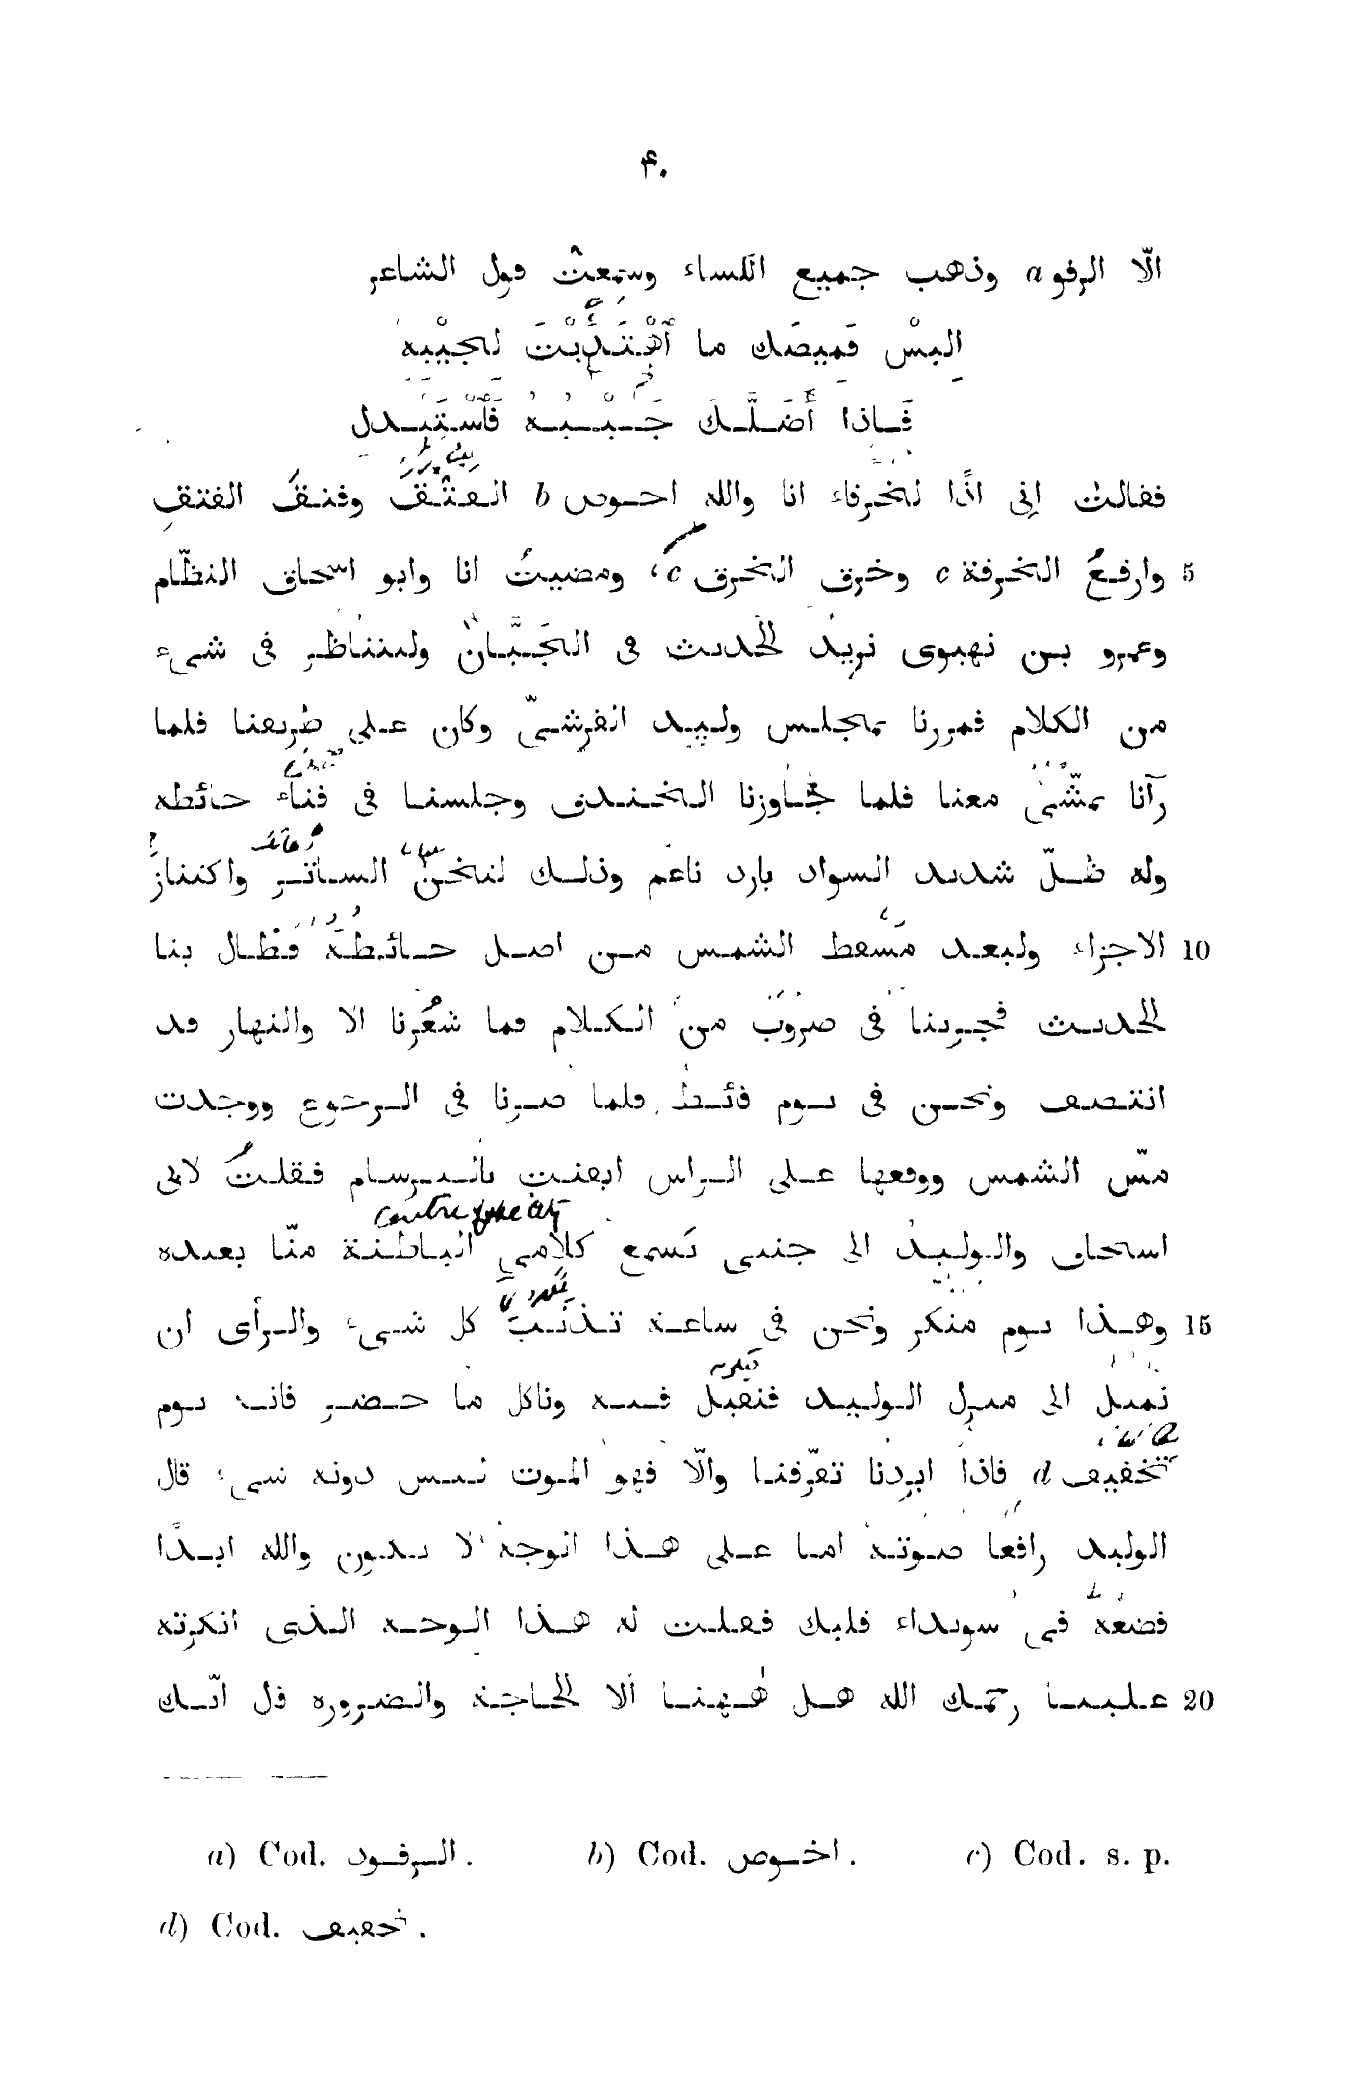 ۴٠
الّا الرفو a وذهب جميع الكساء وسمعت قول الشاعر
البسْ قميصَك ما أهْتَدَيْتَ لجيبه
فاذا أَضَلَّك جَيْبُهُ فَاسْتَبْدل
فقالت إنى اذًا لخرقاء انا والله احوص b الفتق وفتق الفتق
5 وارقع الخرقة c وخرق الخرق c، ومضيتُ انا وابو اسحاق النظّام
وعمرو بن نهبوى نريد الحديث فى الجَبّان ولنتناظر فى شىء
من الكلام فمررنا بمجلس وليد القرشىّ وكان على طريقنا فلما
رآنا تمشّى معنا فلما جاوزنا الخندق وجلسنا فى فناء حائطه
وله ظلّ شديد السواد بارد ناعم وذلك لثخن الساتر واكتناز
10 الاجزاء ولبعد مسقط الشمس من اصل حائطه فطال بنا
الحديث فجرينا فى ضروب من الكلام فما شعرنا الا والنهار قد
انتصف ونحن فى يوم قائظ فلما صرنا فى الرجوع ووجدت
مسّ الشمس ووقعها على الراس ايقنت بالبرسام فقلت لابى
اسحاق والوليد الى جنبى يسمع كلامى الباطنة منّا بعيدة
15 وهذا يوم منكر ونحن فى ساعة تذيب كل شىء والرأى ان
نميل الى منزل الوليد فنقيل فيه وناكل ما حضر فانه يوم
تخفيف d فاذا ابردنا تفرّقنا والّا فهو الموت ليس دونه شىء، قال
الوليد رافعا صوته اما على هذا الوجه لا يكون والله ابدًا
فضعه فى سويداء قلبك فقلت له هذا الوجه الذى انكرته
20 علينا رحمك الله هل هٰهنا الا الحاجة والضرورة قال انّك
a) Cod. الرفود. b) Cod. اخوص. c) Cod. s. p.
d) Cod. .